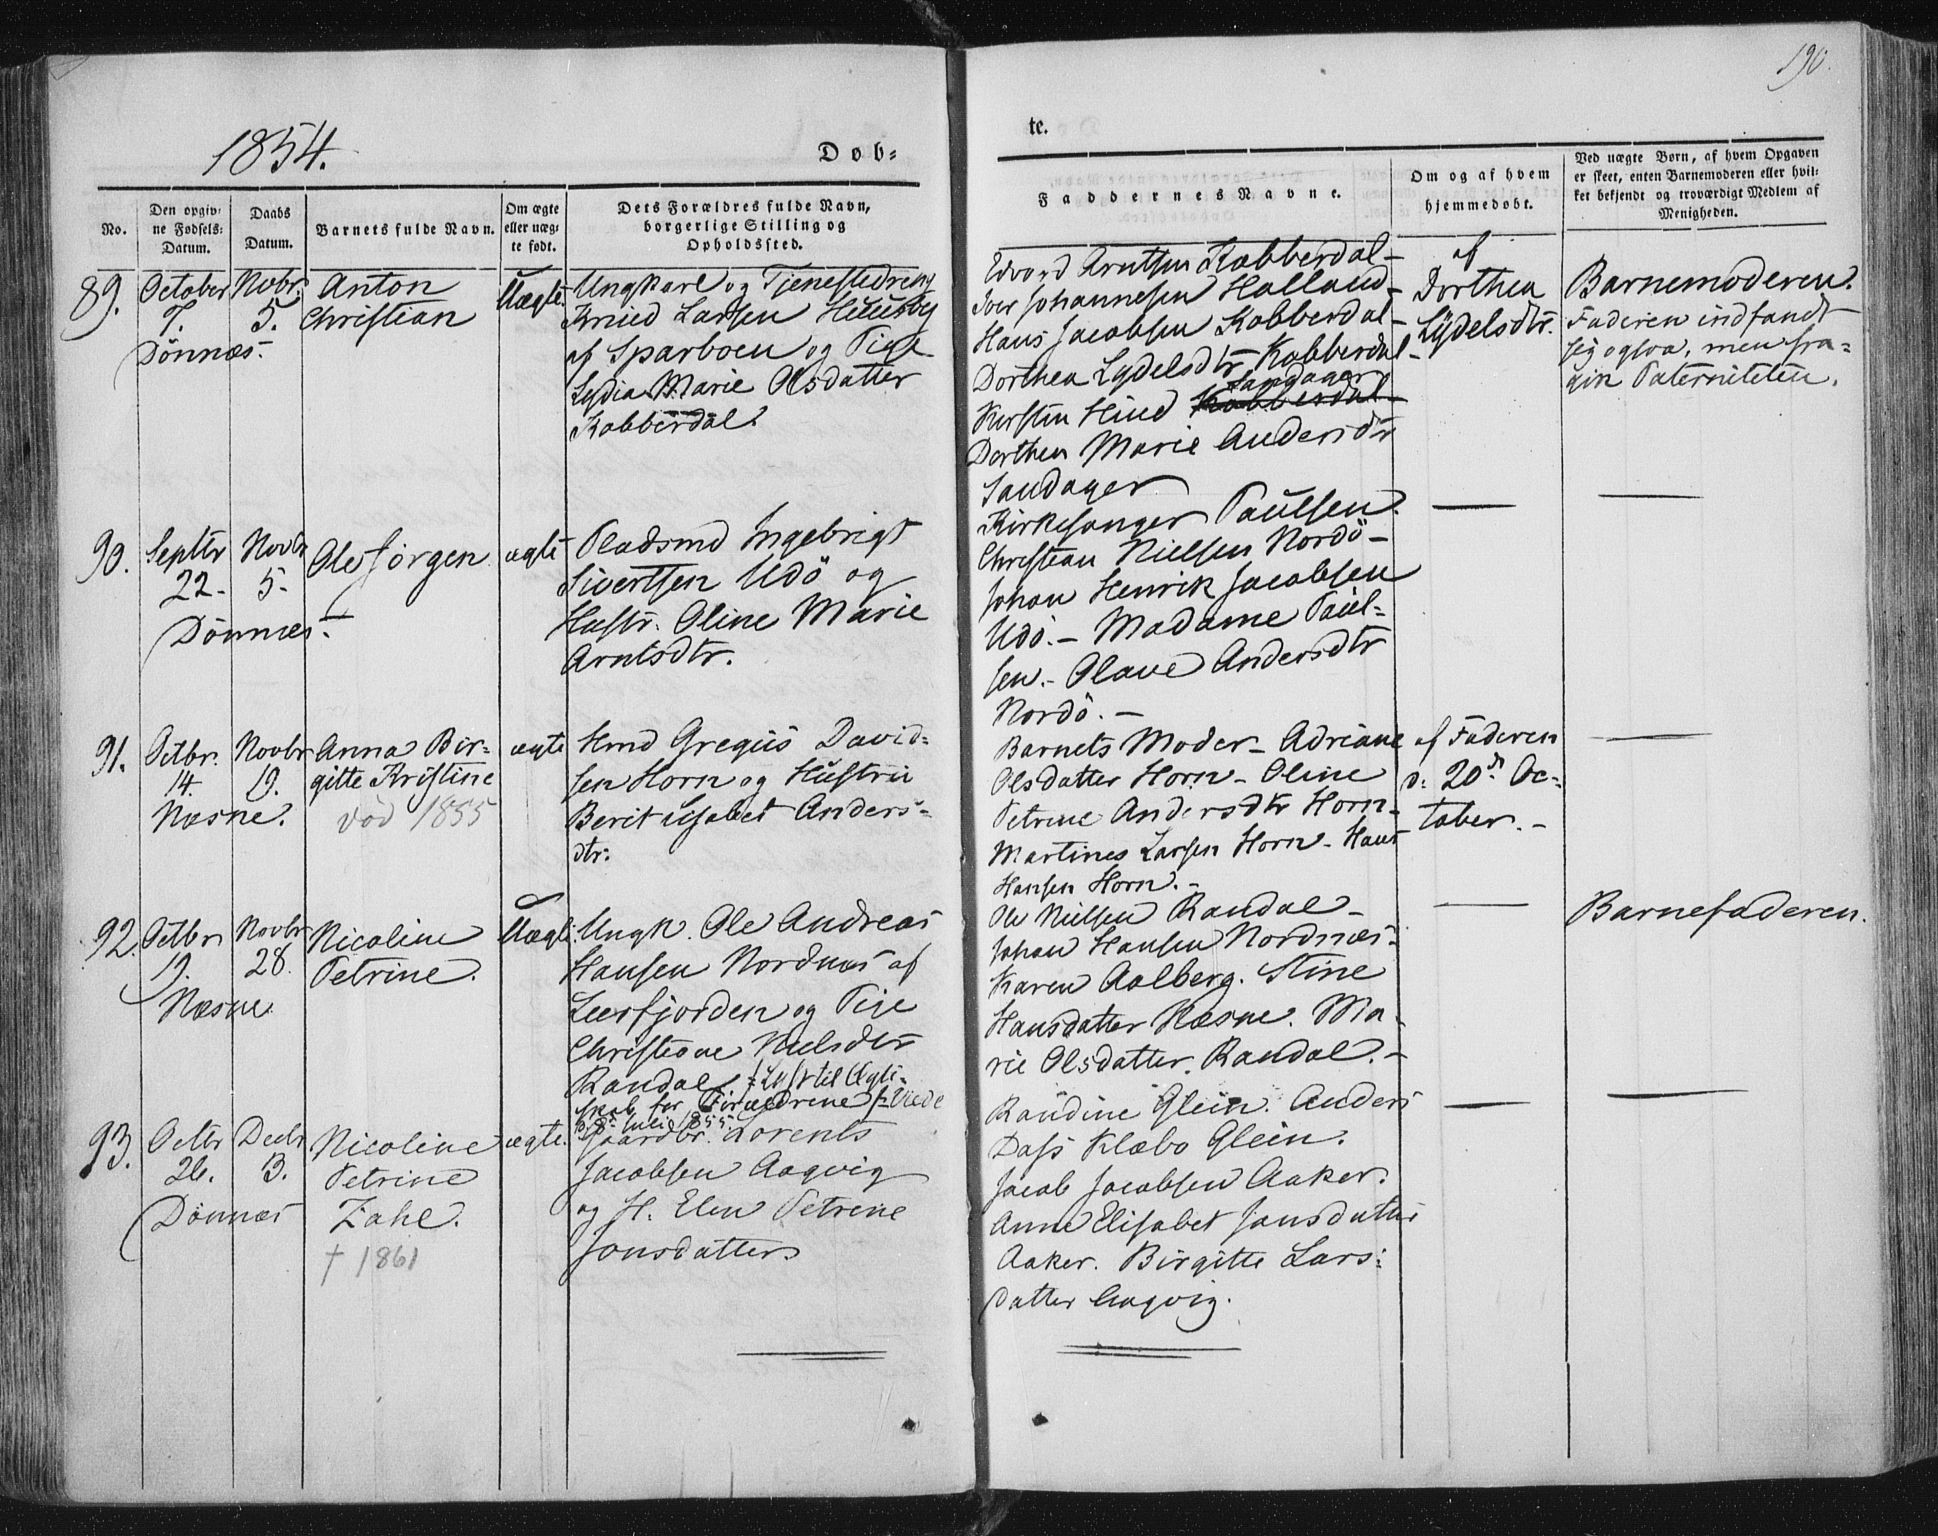 190.
1854.
Døb-
te.
No.
Den opgiv-
ne Fødsels-
Datum.
Daabs
Datum.
Barnets fulde Navn.
Om ægte
eller uæg-
te født.
Dets Forældres fulde Navn,
borgerlige Stilling og
Opholdssted.
Faddernes Navne.
Om og af hvem
hjemmedøbt.
Ved uægte Børn, af hvem Opgaven
er skeet, enten Barnemoderen eller hvil-
ket bekjendt og troværdigt Medlem af
Menigheden.
89.
October
7.
Dönnæs.
Novbr.
5.
Anton
Christian
Uægte.
Ungkarl og Tjenestedreng
Knud Larsen
af Sparboen og Pige
Lydia Marie Olsdatter
Kobberdal.
Edvard Arntsen Kobberdal-
Iver Johannesen Halland-
Hans Jacobsen Kobberdal-
Dorthea Lydelsdtr Kobberdal-
Sandager
Kirsten Hind Kobberdal-
Dorthea Marie Andersdtr
Sandager
af
Dorthea
Lydelsdtr.
Barnemoderen.
Faderen indfandt
sig ogsaa, men fra-
gik Paterniteten.
90.
Septbr
22-
Dönnæs.
Novbr
5-
Ole Jörgen
ægte
Pladsmd Ingebrigt
Sivertsen Udö og
Hustr. Oline Marie
Arntsdtr.
Kirkesanger Paulsen.
Christian Nielsen Nordö-
Johan Henrik Jacobsen
Udö.- Madame Paul-
sen.- Olave Andersdtr
Nordö.-
91.
Octbr.
14.
Næsne.
Novbr
19.
Anna Bir-
gitte Kristine
död 1855
ægte
Hmd Gregus David-
sen Horn og Hustru
Berit Elisabet Anders-
dtr:
Barnets Moder- Adriane
Olsdatter Horn- Oline
Petrine Andersdtr Horn-
Martines Larsen Horn- Hans
Hansen Horn.-
af Faderen
d. 20d Oc-
tober.-
92.
Octbr
19.
Næsne.
Novbr
28.
Nicoline
Petrine.
Uægte.
Ungk. Ole Andreas
Hansen Nordnæs af
Leerfjorden og Pige
Christiane Nielsdtr
Randal. (: Lyst til Ægte-
skab for Forældrene :) Viede
8de Juli 1855.
Ole Nielsen Randal-
Johan Hansen Nordnæs-
Karen Aalberg. Stine
Hansdatter Næsne. Ma-
rie Olsdatter. Randal.-
Barnefaderen.
93.
Octbr
26.
Dönnæs
Decbr
3.
Nicoline
Petrine
Zahl.
† 1861
ægte.
Gaardbr. Lorents
Jacobsen Aagvig
og H. Elen Petrine
Jonsdatter
Raudine Glein. Anders
Dass Klæbo Glein.
Jacob Jacobsen Aaker.
Anne Elisabet Jonsdatter
Aaker. Birgitte Lars-
datter Aagvig.